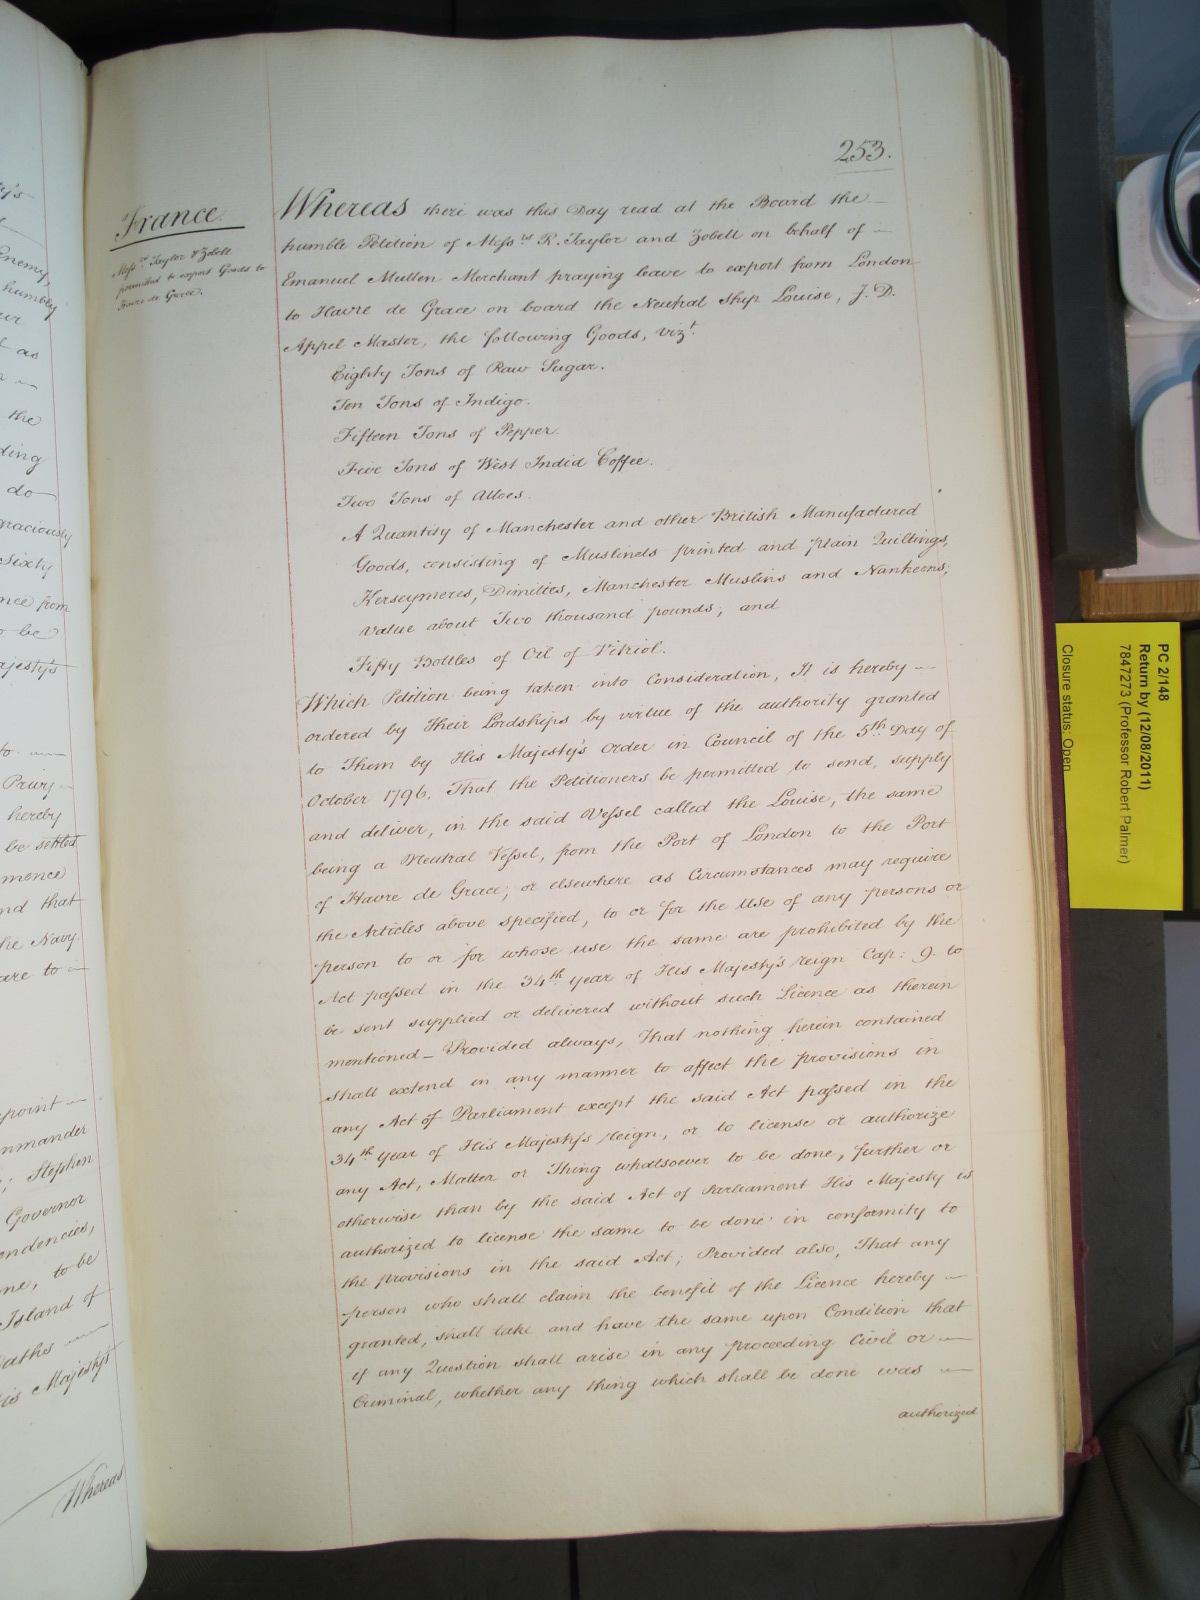 253.
France
Mess.rs Taylor & Zobell
permitted to export Goods to
Havre de Grace.
Whereas there was this Day read at the Board the
humble Petition of Mess.rs R. Taylor and Zobell on behalf of
Emanuel Mullen Merchant praying leave to export from London
to Havre de Grace on board the Neutral Ship Louise, J. D.
Appel Master, the following Goods, vizt.
Eighty Tons of Raw Sugar.
Ten Tons of Indigo.
Fifteen Tons of Pepper.
Five Tons of West India Coffee.
Two Tons of Alloes.
A Quantity of Manchester and other British Manufactured
Goods, consisting of Muslinets printed and plain Quiltings,
Kerseymeres, Dimities, Manchester Muslins and Nankeens;
value about Two thousand pounds; and
Fifty Bottles of Oil of Vitriol.
Which Petition being taken into Consideration, It is hereby
ordered by Their Lordships by virtue of the authority granted
to Them by His Majesty's Order in Council of the 5th. Day of
October 1796. That the Petitioners be permitted to send, supply
and deliver, in the said Vessel called the Louise, the same
being a Neutral Vessel, from the Port of London to the Port
of Havre de Grace, or elsewhere as Circumstances may require
the Articles above specified, to or for the Use of any persons or
person to or for whose use the same are prohibited by the
Act passed in the 34th. year of His Majesty's reign Cap: 9. to
be sent supplied or delivered without such Licence as therein
mentioned – Provided always, That nothing herein contained
shall extend in any manner to affect the provisions in
any Act of Parliament except the said Act passed in the
34th. year of His Majesty's reign, or to license or authorize
any Act, Matter or Thing whatsoever to be done, further or
otherwise than by the said Act of Parliament His Majesty is
authorized to license the same to be done in conformity to
the provisions in the said Act; Provided also, That any
person who shall claim the benefit of the Licence hereby
granted, shall take and have the same upon Condition that
if any Question shall arise in any proceeding Civil or
Criminal, whether any thing which shall be done was
authorized
Enemy,
humbly
as
the
do
graciously
Sixty
from
be
Privy
hereby
be settled
that
the Navy
are to
Stephen
Governor
to be
Island of
His Majesty's
Whereas
PC 2/148
Return by (12/08/2011)
7847273 (Professor Robert Palmer)
Closure status: Open